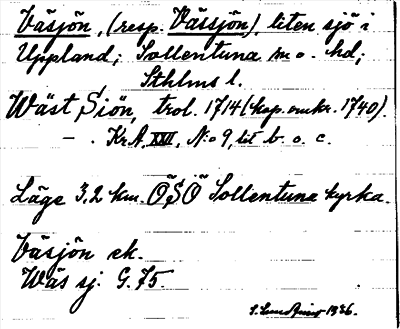 Väsjön, (resp. Vässjön), liten sjö i
Uppland; Sollentuna sn o. hd;
Sthlms l.
Wäst Siön, trol. 1714 (kop. omkr. 1740).
— . Kr.A. XXVI, N:o 9, lit b. o. c.
Läge 3,2 km. ÖSÖ Sollentuna kyrka.
Väsjön ek.
Wäs sj. G. 75.
1926.